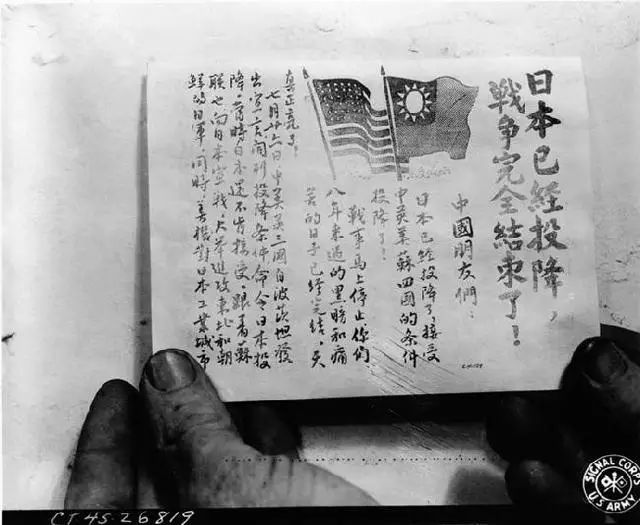 日本已经投降，
戦争完全結束了！
中國朋友們：
日本已經投降了，接受
中英美蘇四國的条件
投降了！
戰事馬上停止，你們
八年來过的黑暗和痛
苦的日子已經完結，天
真正亮了。
七月廿六日中美英三國自波茨坦發
出宣言，開列投降条件，命令日本投
降，當時日本還不肯接受。跟着蘇
聯也向日本宣戰，大举進攻東北和朝
鮮的日軍，同時美機對日本工業城市
CT-45-26819
SIGNAL CORPS
U.S. ARMY